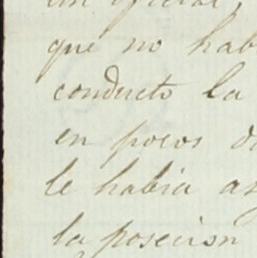 un oficial,
que no hab
conducto la
en pocos d
le habia as
la posecion